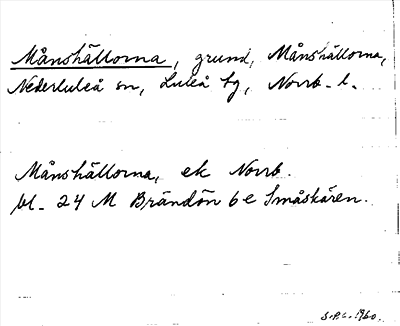 Månshällorna, grund, Månshällorna,
Nederluleå sn, Luleå tg, Norrb. l.
Månshällorna, ek Norrb.
bl. 24 M Brändön 6e Småskären.
S.P.G. 1960.